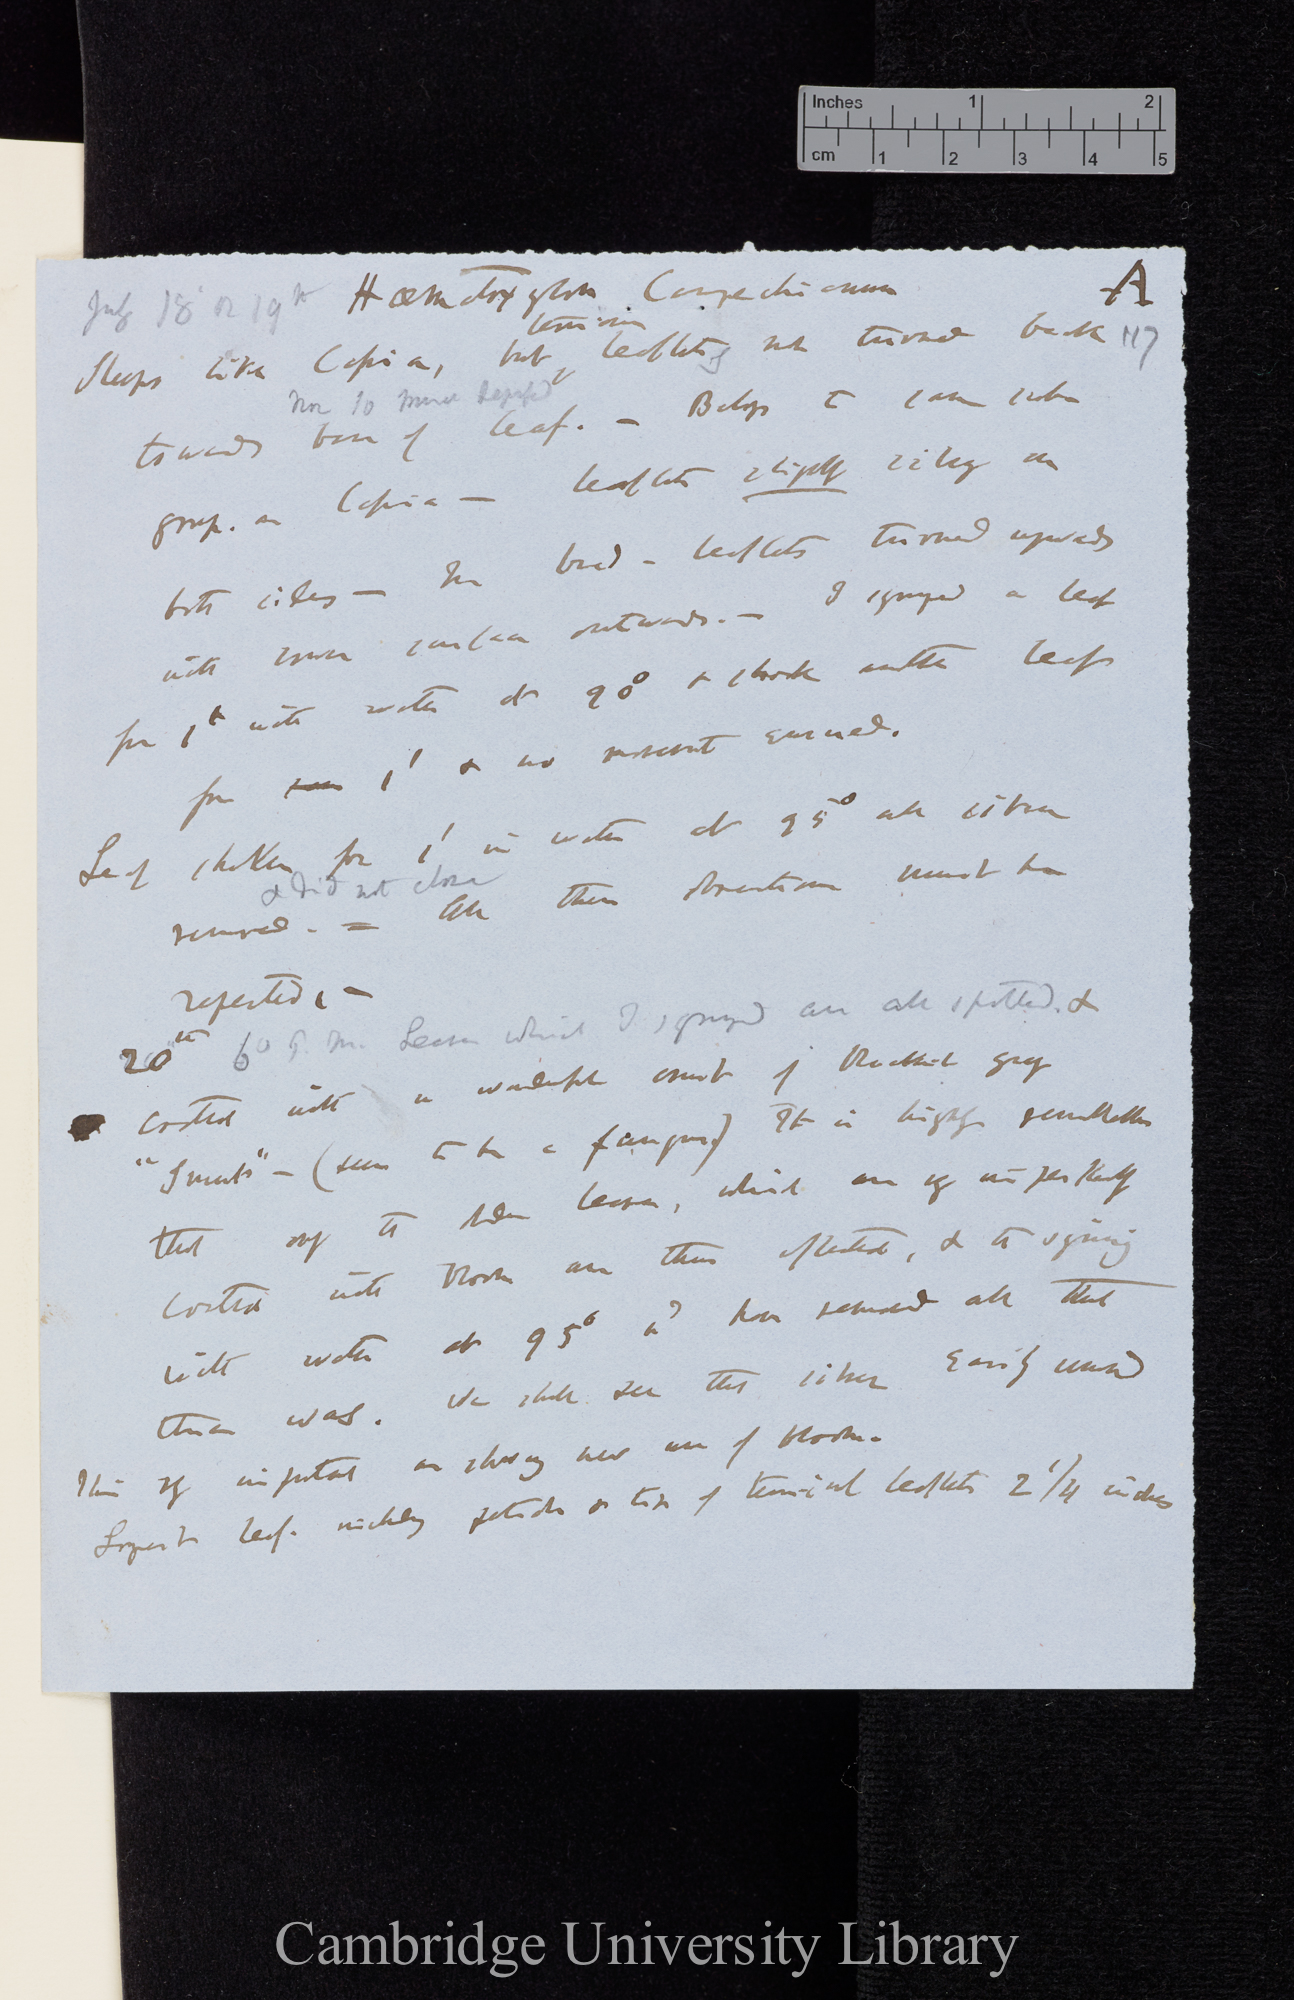 Inches 1 2
cm 1 2 3 4 5
July 18 or 19th Hæmatoxylon Campechianum A
117
terminal
Sleeps like Cassia, but leaflets not turned back
nor so much depressed
towards base of leaf. — Belongs to same sub
group. as Cassia — leaflets slightly silvery on
both sides — In bud — leaflets turned upwards
with lower surface outwards. — I syringed a leaf
for 1h with water at 90° & shook another leaf
for 1' & no movement ensued.
Leaf shaken for 1' in water at 95° all silver
& did not close
removed. — All these observations must be
repeated. —
20th 6° P.m. Leaves which I syringed are all spotted, &
coated with a wonderful amount of blackish grey
"Smuts" — (seems to be a fungus) It is highly remarkable
that only the older leaves, which are imperfectly
coated with bloom are thus affected, & the syringing
with water at 95° wd have removed all that
there was. We shall see this silver easily removed
This important as showing new use of bloom.
Longest leaf. including petiole to tip of terminal leaflets 2 1/4 inches
Cambridge University Library